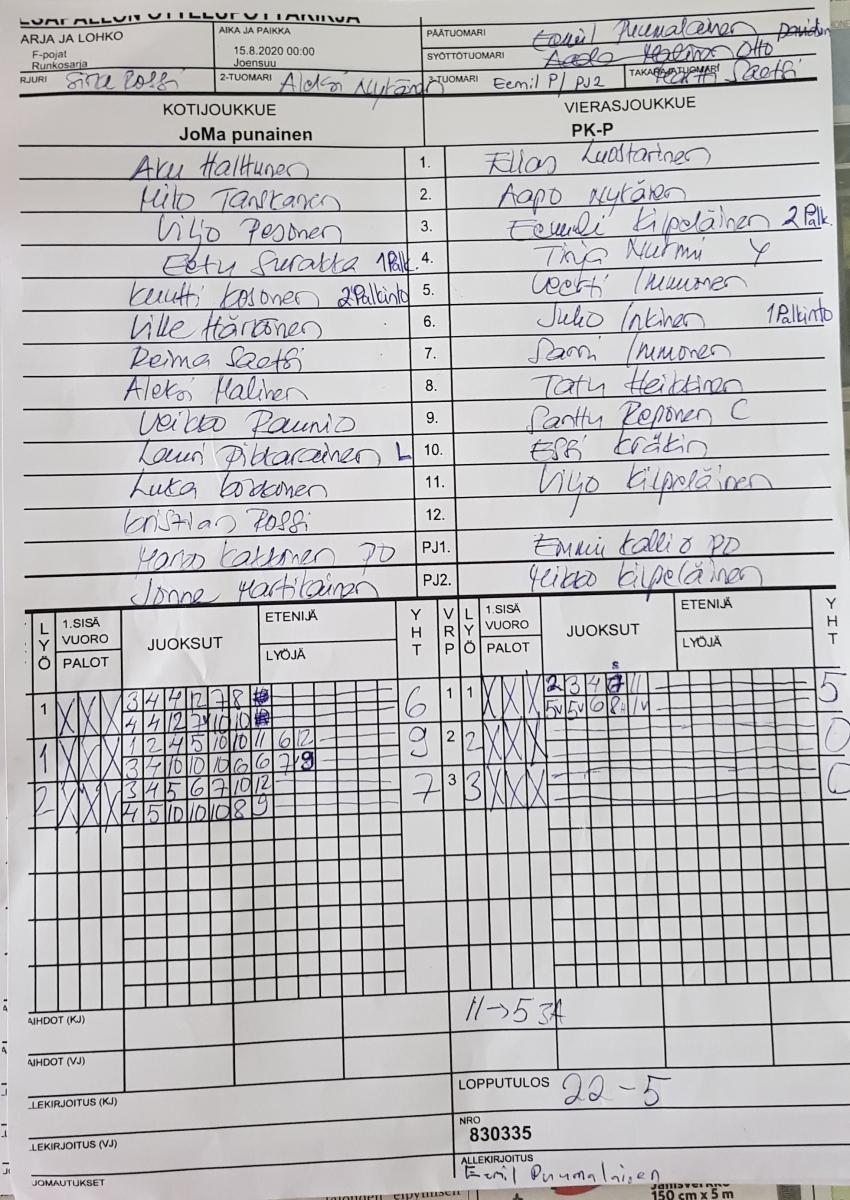 ESÄPALLON OTTELUPÖYTÄKIRJA
ARJA JA LOHKO
F-pojat
Runkosarja
AIKA JA PAIKKA
15.8.2020 00:00
Joensuu
PÄÄTUOMARI Eemil Puumalainen
SYÖTTÖTUOMARI Aada Malinen Otto
RJURI Sira Rossi 2-TUOMARI Aleksi Nykänen 3-TUOMARI Eemil P/ PJ2 TAKARAJATUOMARI Saetsi
KOTIJOUKKUE VIERASJOUKKUE
JoMa punainen PK-P
Aku Halttunen 1. Elias Luostarinen
Milo Tanskanen 2. Aapo Nykänen
Viljo Pesonen 3. Eemeli Kilpeläinen 2 Palk.
Eetu Surakka 1 Palk. 4. Tinja Nurmi Y
Kuutti Kosonen 2 Palkinto 5. Veeti Immonen
Ville Härkönen 6. Juho Inkinen 1 Palkinto
Reima Saetsi 7. Sami Immonen
Aleksi Malinen 8. Tatu Heikkinen
Veikko Raunio 9. Santtu Reponen C
Lauri Pikkarainen L 10. Essi Kräkin
Luka Kokkonen 11. Viljo Kilpeläinen
Kristian Rossi 12.
Marko Kakkonen PJ1. Emmi Kallio
Jonne Martikainen PJ2. Heikko Kilpeläinen
LYÖ 1.SISÄ VUORO PALOT JUOKSUT ETENIJÄ LYÖJÄ YHT VRP LYÖ 1.SISÄ VUORO PALOT JUOKSUT ETENIJÄ LYÖJÄ YHT
1 X X X 3 4 4 12 7 8 6 1 1 X X X 2 3 4 7 11 5
4 4 12 7 10 10 5v 5v 6 8
1 X X X 1 2 4 5 10 10 11 6 12 9 2 2 X X X 0
3 4 10 10 10 6 6 7 9
2 X X X 3 4 5 6 7 10 12 7 3 3 X X X 0
4 5 10 10 10 8 9
AIHDOT (KJ) 11→5 3A
AIHDOT (VJ)
LEKIRJOITUS (KJ) LOPPUTULOS 22-5
LEKIRJOITUS (VJ) NRO
830335
JOMAUTUKSET ALLEKIRJOITUS
Eemil Puumalainen
150 cm x 5 m